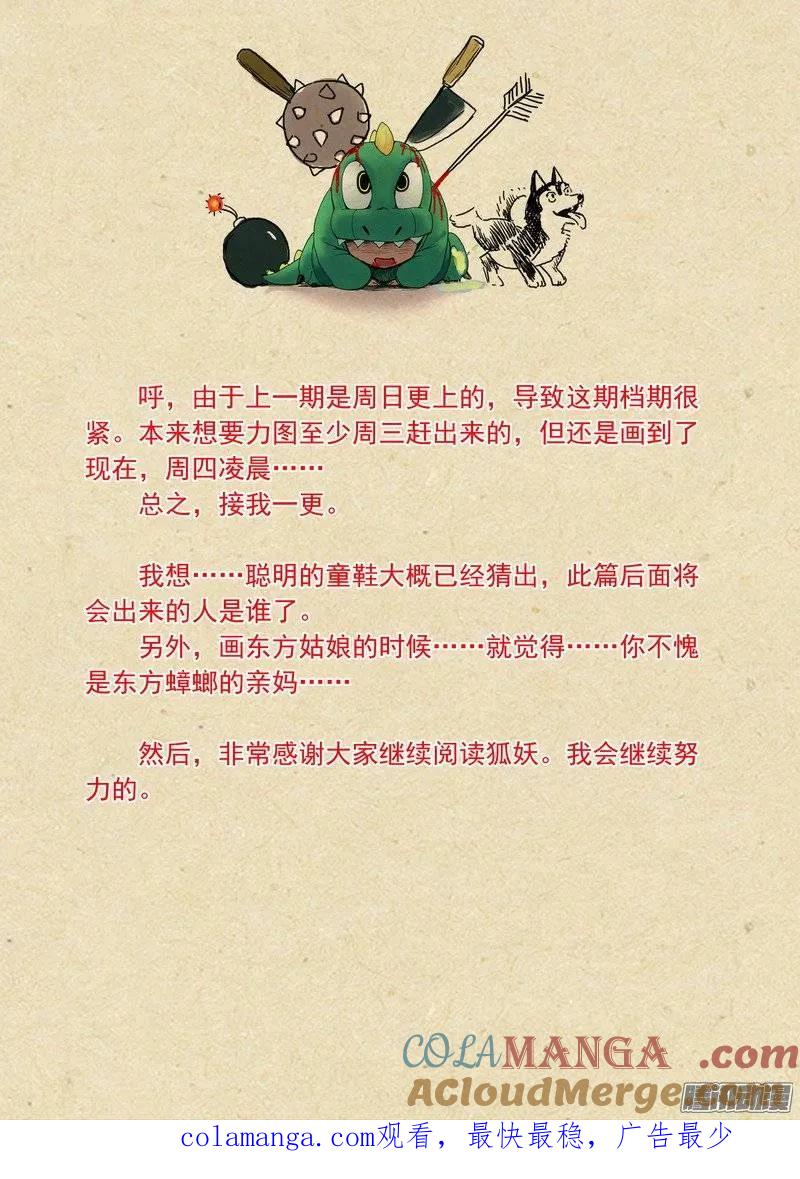 呼，由于上一期是周日更上的，导致这期档期很
紧。本来想要力图至少周三赶出来的，但还是画到了
现在，周四凌晨……
总之，接我一更。
我想……聪明的童鞋大概已经猜出，此篇后面将
会出来的人是谁了。
另外，画东方姑娘的时候……就觉得……你不愧
是东方蟑螂的亲妈……
然后，非常感谢大家继续阅读狐妖。我会继续努
力的。
COLAMANGA.com
ACloudMerge.com
腾讯动漫
colamanga.com观看，最快最稳，广告最少